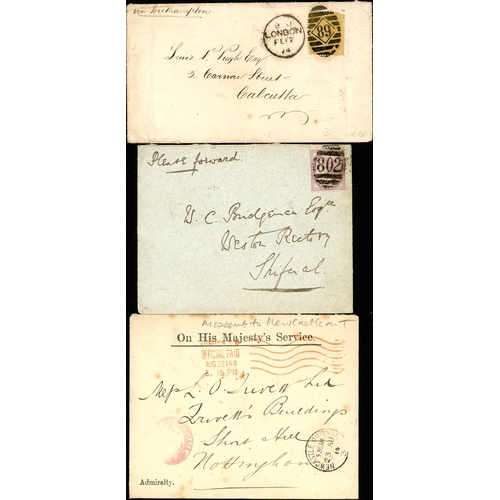 via Southampton
LONDON
FE 17
74
89
Louis P. Pugh Esq
2 Carnac Street
Calcutta
Please forward.
802
W. C. Bridgeman Esqre
Weston Rectory
Shifnal
missent to Newcastle on T
On His Majesty's Service.
OFFICIAL PAID
AUG 22 14
15 PM
Messrs L. O. Trivett Ltd
Trivett's Buildings
Short Hill
Nottingham
NEWCASTLE
23 AU
14
Admiralty.